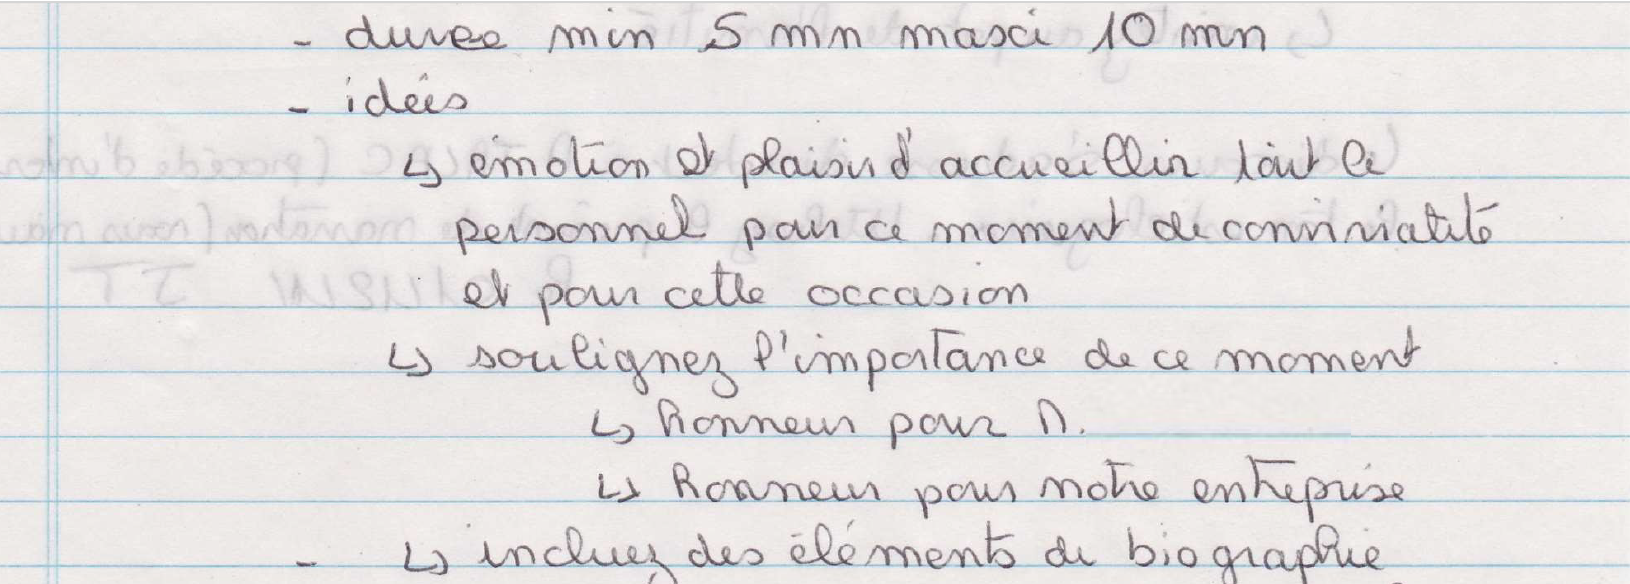 - durée min 5 mn maxi 10 mn
- idées
↳ émotion et plaisir d'accueillir tout le
personnel pour ce moment de convivialité
et pour cette occasion
↳ soulignez l'importance de ce moment
↳ honneur pour M.
↳ honneur pour notre entreprise
- ↳ incluez des éléments de biographie